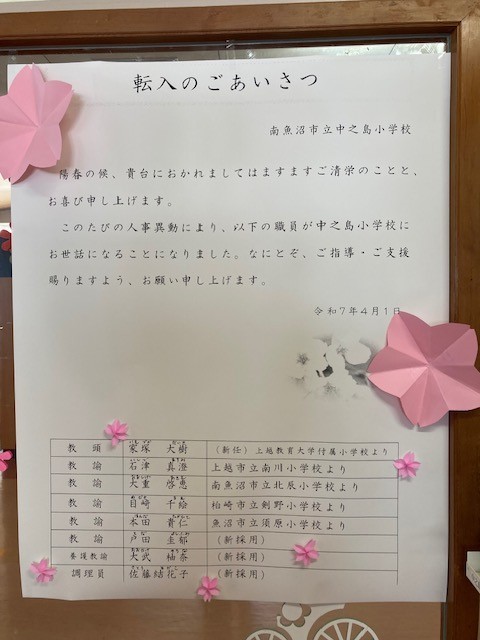 転入のごあいさつ
南魚沼市立中之島小学校
陽春の候、貴台におかれましてはますますご清栄のことと、
お喜び申し上げます。
このたびの人事異動により、以下の職員が中之島小学校に
お世話になることになりました。なにとぞ、ご指導・ご支援
賜りますよう、お願い申し上げます。
令和7年4月1日
教頭 家塚 大樹 （新任）上越教育大学付属小学校より
教諭 石津 真澄 上越市立南川小学校より
教諭 大重 啓恵 南魚沼市立北辰小学校より
教諭 目﨑 千絵 柏崎市立剣野小学校より
教諭 本田 貴仁 魚沼市立須原小学校より
教諭 戸田 圭郁 （新採用）
養護教諭 大武 柚奈 （新採用）
調理員 佐藤結花子 （新採用）